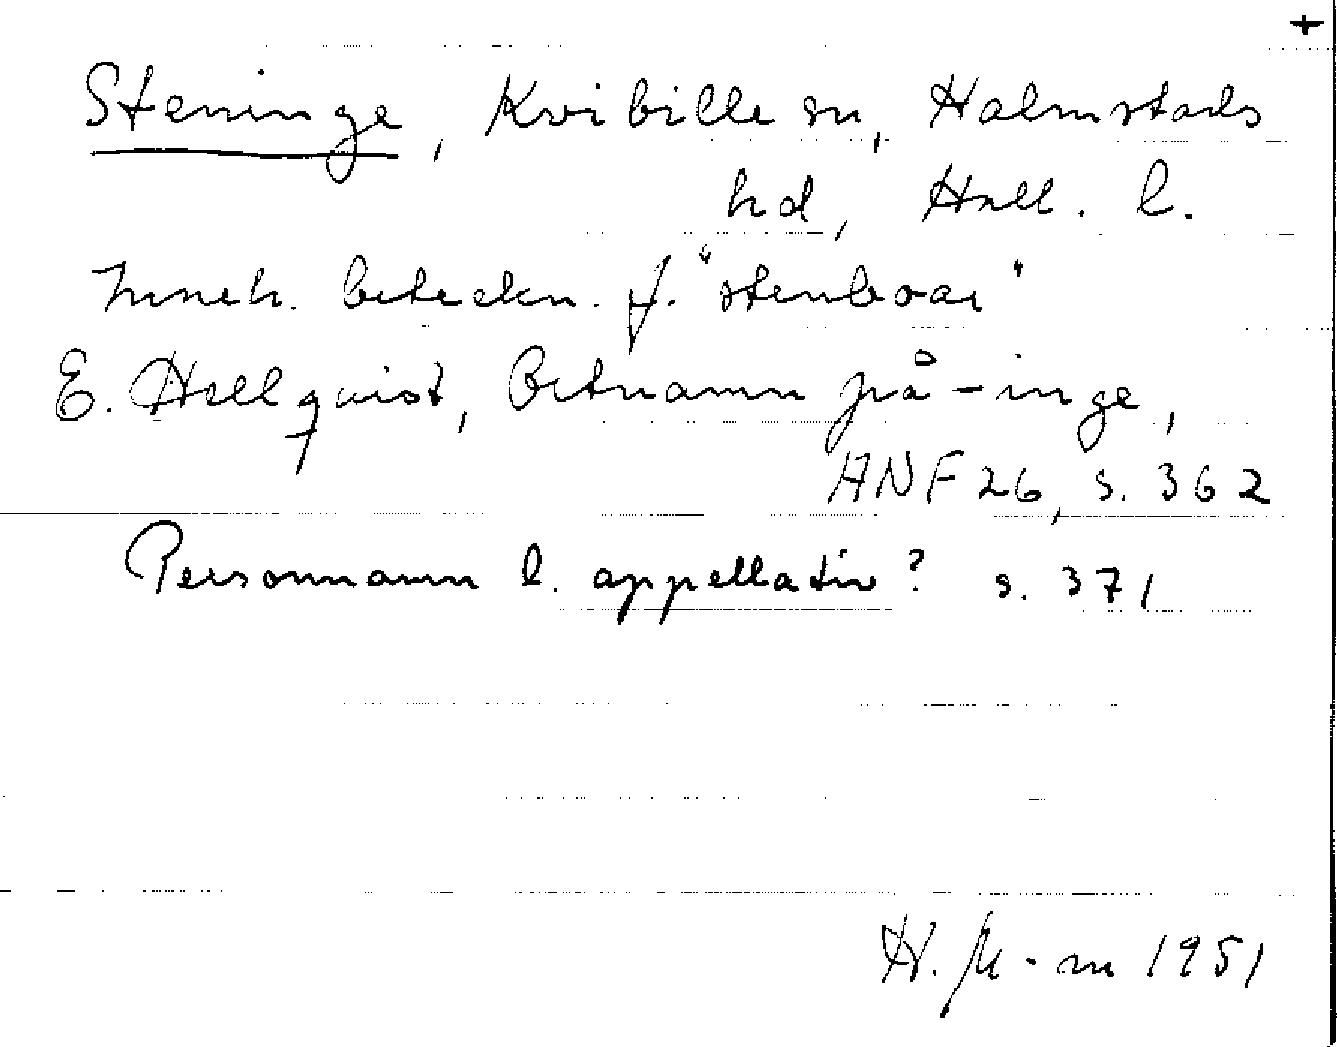 +
Steninge, Kvibille sn, Halmstads
hd, Hall. l.
Inneh. beteckn. f. "stenboar"
E. Hellquist, Ortnamn på -inge,
ANF 26, s. 362
Personnamn l. appellativ? s. 371
H. M-m 1951